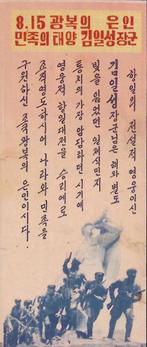 8.15 광복의 은인
민족의 태양 김일성장군
항일의 전설적 영웅이신
김일성장군님은 해와 별도
빛을 잃었던 일제식민지
통치의 가장 암담하던 시기에
영웅적 항일대전을 승리에로
조직령도하시여 나라와 민족을
구원하신 조국광복의 은인이시다.